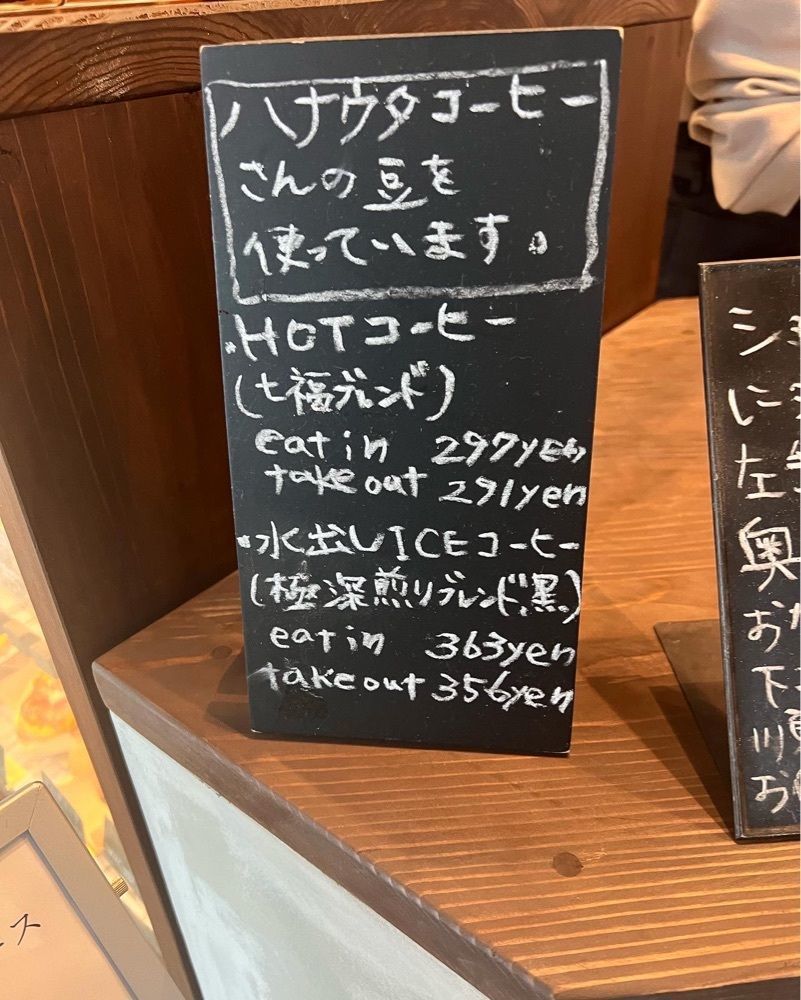 ハナウタコーヒー
さんの豆を
使っています。
・HOTコーヒー
(七福ブレンド)
eat in 297yen
takeout 291yen
・水出しICEコーヒー
(極深煎りブレンド、黒、)
eat in 363yen
takeout 356yen
に
左
奥
お
下
川
お
ス